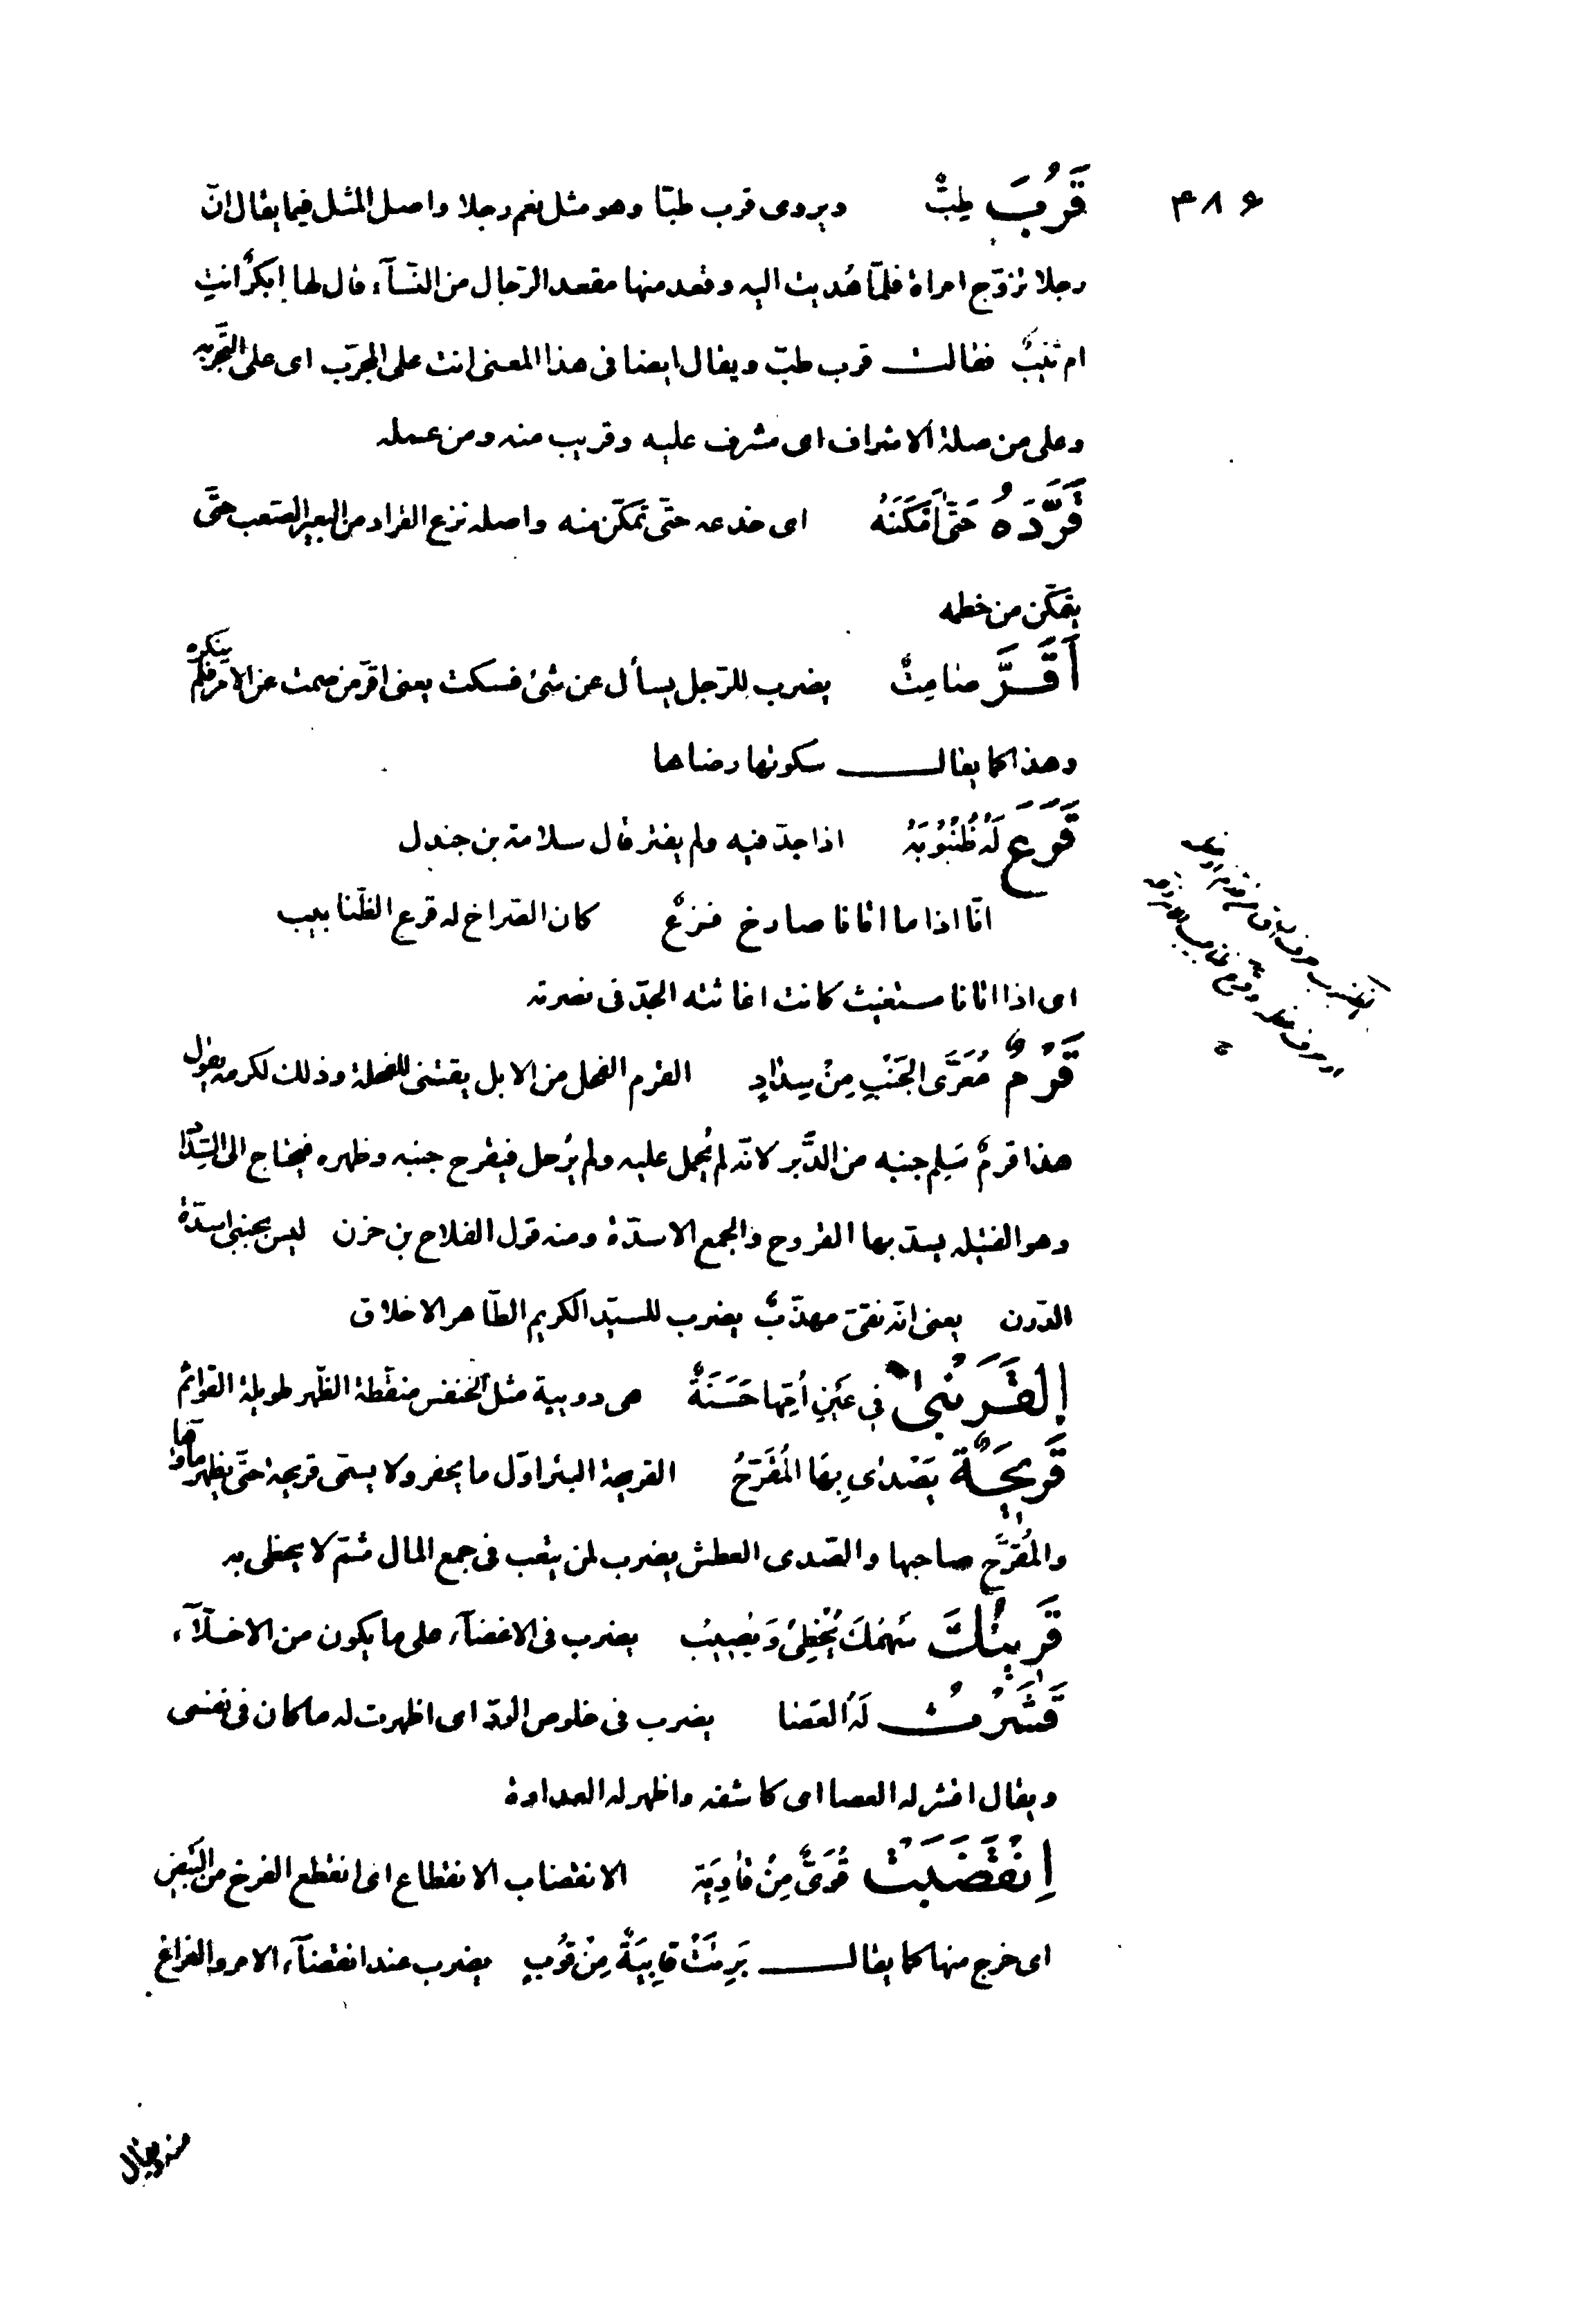 ۴۸۶
قَرُبَ طِبٌّ ويروى قرب طبّا وهو مثل نعم رجلا واصل المثل فيما يقال انّ
رجلا تزوّج امراة فلمّا هُديت اليه وقعد منها مقعد الرّجال من النّسآء قال لها ابكرٌ انتِ
ام ثيّبٌ فقالت قرب طبّ ويقال ايضا فى هذا المعنى انت على المجرّب اى على التّجربه
وعلى من صلة الاشراف اى مشرف عليه وقريب منه ومن عمله
قَرَّدَهُ حَتّٰى اَمْكَنَهُ اى خدعه حتّى تمكّن منه واصله نزع القراد من البعير الصّعب حتّى
يتمكّن من خطمه
أَقَرَّ صٰامِتٌ يضرب للرّجل يسأل عن شئ فسكت يعنى اقرّ من صمت عن الامر فلم ينكره
وهذا كما يقال سكوتها رضاها
قَرَعَ لَهُ ظُنْبُوبَهُ اذا جدّ فيه ولم يفتر قال سلامة بن جندل
انّا اذا ما اتانا صارخ فزعٌ كان الصّراخ له قرع الظّنابيب
اى اذا اتانا مستغيث كانت اغاثته الجدّ فى نصرته
قَرْمٌ مُعَرَّى الجَنْبِ مِنْ سِدٰادٍ القرم الفحل من الابل يقتنى للفحلة وذلك لكرمه يقول
هذا قرمٌ سَلِم جنبه من الدَّبر لانّه لم يُحمل عليه ولم يُرحل فيقرح جنبه وظهره فيحتاج الى السِّدَاد
وهو الفتيله يسدّ بها القروح والجمع الاسدّة ومنه قول القلاح بن حزن ليس بجنبى اسدّة
الدّرن يعنى انّه نقىّ مهذّبٌ يضرب للسيّد الكريم الطّاهر الاخلاق
اِلْقَرَنْبىٰ فى عَيْنِ اُمِّهٰا حَسَنَةٌ هى دويبة مثل الخنفس منقّطة الظّهر طويلة القوائم
قَرِيحَةٌ يَصْدٰى بِهَا المُقَرِّحُ القريحة البئر اوّل ما يحفر ولا يسمّى قريحة حتّى يظهر ماؤها
والمُقرِّح صاحبها والصّدى العطش يضرب لمن يتعب فى جمع المال ثمّ لا يحظى به
قَرِينُكَ سَهْمُكَ يُخْطِئُ وَيُصِيبُ يضرب فى الاغضآء على ما يكون من الاخلّاء
قَشَرْتُ لَهُ العَصٰا يضرب فى خلوص الودّ اى اظهرت له ما كان فى نفسى
ويقال اقشر له العصا اى كاشفه واظهر له العداوة
اِنْقَضَبَتْ قُوَىٌّ مِنْ قٰاوِيَةٍ الانقضاب الانقطاع اى انقطع الفرخ من البَيض
اى خرج منها كما يقال بَرِئَتْ قٰايِبَةٌ مِنْ قُوبٍ يضرب عند انقضآء الامر والفراغ
منه ويقال